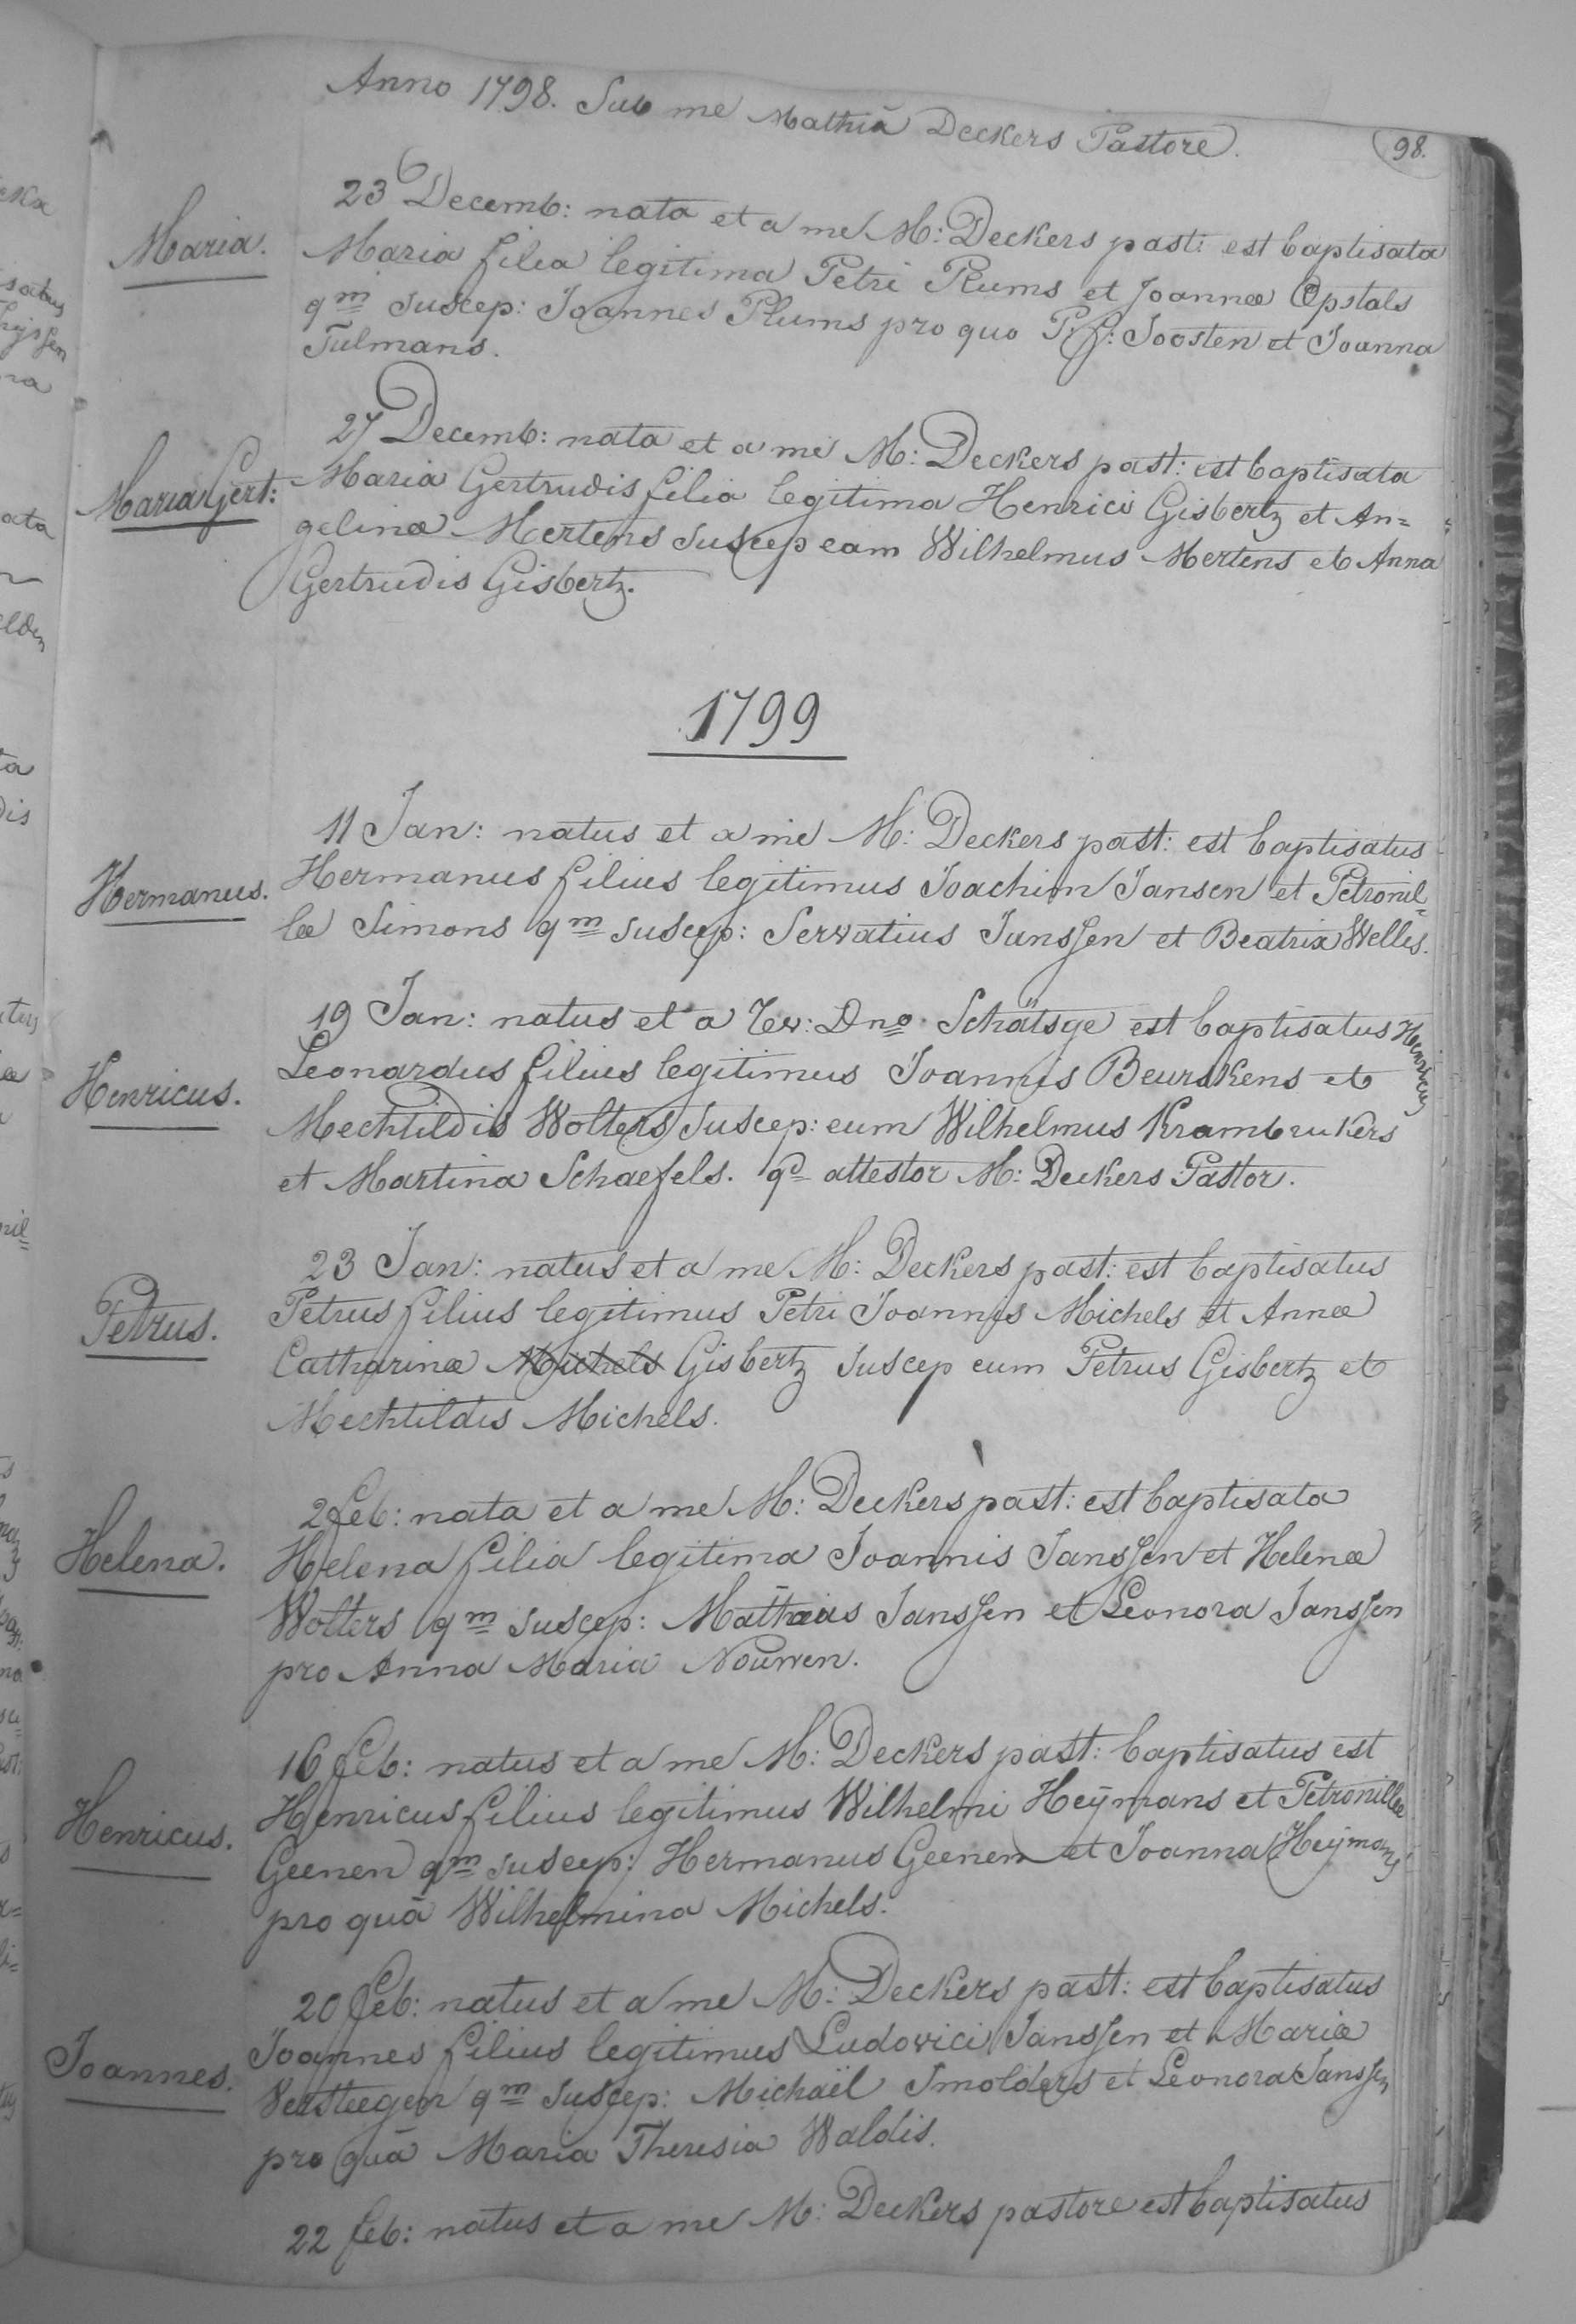 Anno 1798. Sub me Mathiā Deckers Pastore.
98.
23 Decemb: nata et a me M: Deckers past: est baptisata
Maria.
Maria filia legitima Petri Plums et Joannæ Opstals
qm suscep: Joannes Plums pro quo P: f: Joosten et Joanna
Tulmans.
27 Decemb: nata et a me M: Deckers past: est baptisata
Maria Gert:
Maria Gertrudis filia legitima Henrici Gisbertz et An=
gelinæ Mertens suscep eam Wilhelmus Mertens et Anna
Gertrudis Gisbertz.
1799
11 Jan: natus et a me M: Deckers past: est baptisatus
Hermanus.
Hermanus filius legitimus Joachim Jansen et Petronil=
læ Simons qm suscep: Servatius Janssen et Beatrix Welles.
19 Jan: natus et a Rev: Dno Schätsge est baptisatus Henricus
Henricus.
Leonardus filius legitimus Joannis Beurskens et
Mechtildis Wolters suscep: eum Wilhelmus Krambrukers
et Martina Schaefels. qd attestor M: Deckers Pastor.
23 Jan: natus et a me M: Deckers past: est baptisatus
Petrus.
Petrus filius legitimus Petri Joannis Michels et Annæ
Catharinæ Michels Gisbertz suscep eum Petrus Gisbertz et
Mechtildis Michels.
2 feb: nata et a me M: Deckers past: est baptisata
Helena.
Helena filia legitima Joannis Janssen et Helenæ
Wolters qm suscep: Mathias Janssen et Leonora Janssen
pro Anna Maria Nouwen.
16 feb: natus et a me M: Deckers past: baptisatus est
Henricus.
Henricus filius legitimus Wilhelmi Heÿmans et Petronillæ
Geenen qm suscep: Hermanus Geenen et Joanna Heijmans
pro quā Wilhelmina Michels.
20 feb: natus et a me M: Deckers past: est baptisatus
Joannes.
Joannes filius legitimus Ludovici Janssen et Mariæ
Versteegen qm suscep: Michaël Smolders et Leonora Janssen
pro quā Maria Theresia Waldis.
22 feb: natus et a me M: Deckers pastore est baptisatus